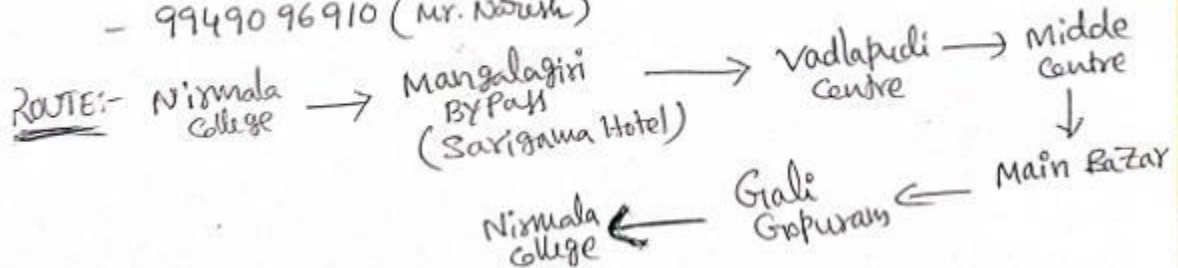 - 9949096910 (Mr. Naresh)
ROUTE:- Nirmala College → Mangalagiri ByPass (Sarigama Hotel) → Vadlapudi Centre → Midde Centre
↓
Main Bazar
Nirmala College ← Gali Gopuram ←